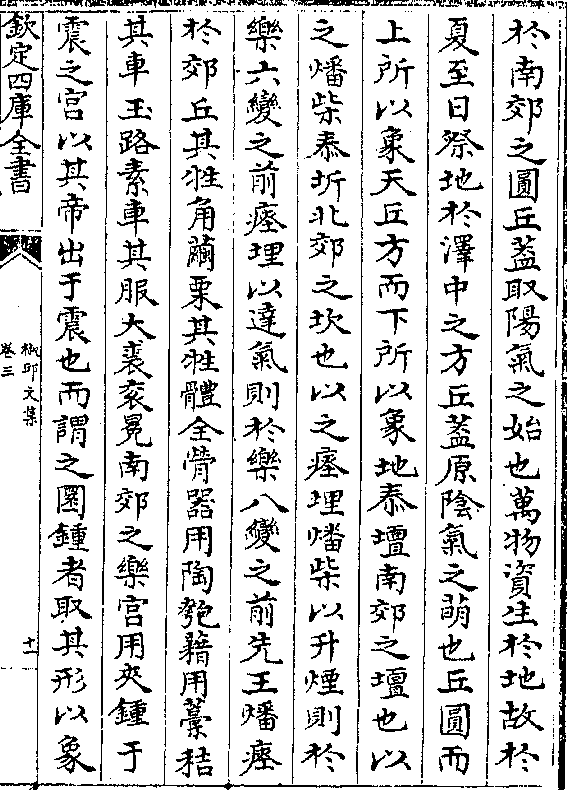 於南郊之圓丘蓋取陽氣之始也萬物資生於地故於
夏至日祭地於澤中之方丘蓋原陰氣之萌也丘圓而
上所以象天丘方而下所以象地泰壇南郊之壇也以
之燔柴泰圻北郊之坎也以之瘞埋燔柴以升煙則於
樂六變之前瘞埋以達氣則於樂八變之前先王燔瘞
於郊丘其牲角繭栗其牲體全膋器用陶匏藉用藁秸
其車玉路素車其服大裘衮冕南郊之樂宮用夾鍾于
震之宫以其帝出于震也而謂之圜鍾者取其形以象
欽定四庫全書
卷三
十一